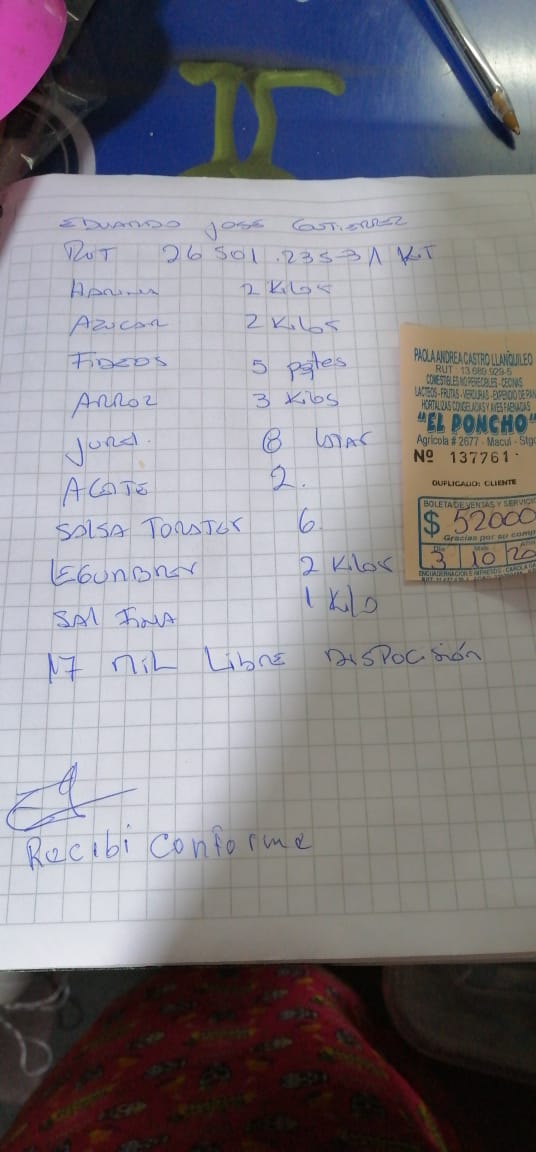 EDUARDO JOSE GUTIERREZ
RUT 26 501.235-3 1 KIT
HARINA 2 Kilos
AZUCAR 2 Kilos
FIDEOS 5 pqtes
ARROZ 3 Kilos
JUREL. 8 latas
ACEITE 2.
SALSA TOMATES 6
LEGUMBRES 2 Kilos
SAL FINA 1 Kilo
17 MIL LIBRE DISPOCISIÓN
Recibi Conforme
PAOLA ANDREA CASTRO LLANQUILEO
RUT: 13.689.929-5
COMESTIBLES NO PERECIBLES - CECINAS
LACTEOS - FRUTAS - VERDURAS - EXPENDIO DE PAN
HORTALIZAS CONGELADAS Y AVES FAENADAS
"EL PONCHO"
Agrícola # 2677 - Macul - Stgo
Nº 137761
DUPLICADO: CLIENTE
BOLETA DE VENTAS Y SERVICIO
$ 52000
Gracias por su comp
Día Mes Año
3 10 20